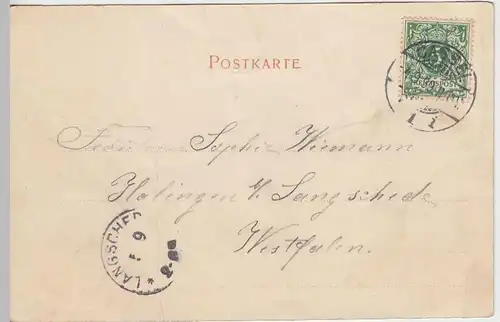 POSTKARTE
5
Fräulein Sophie Wiemann
Halingen b/ Langschede
Westfalen.
LANGSCHED
9